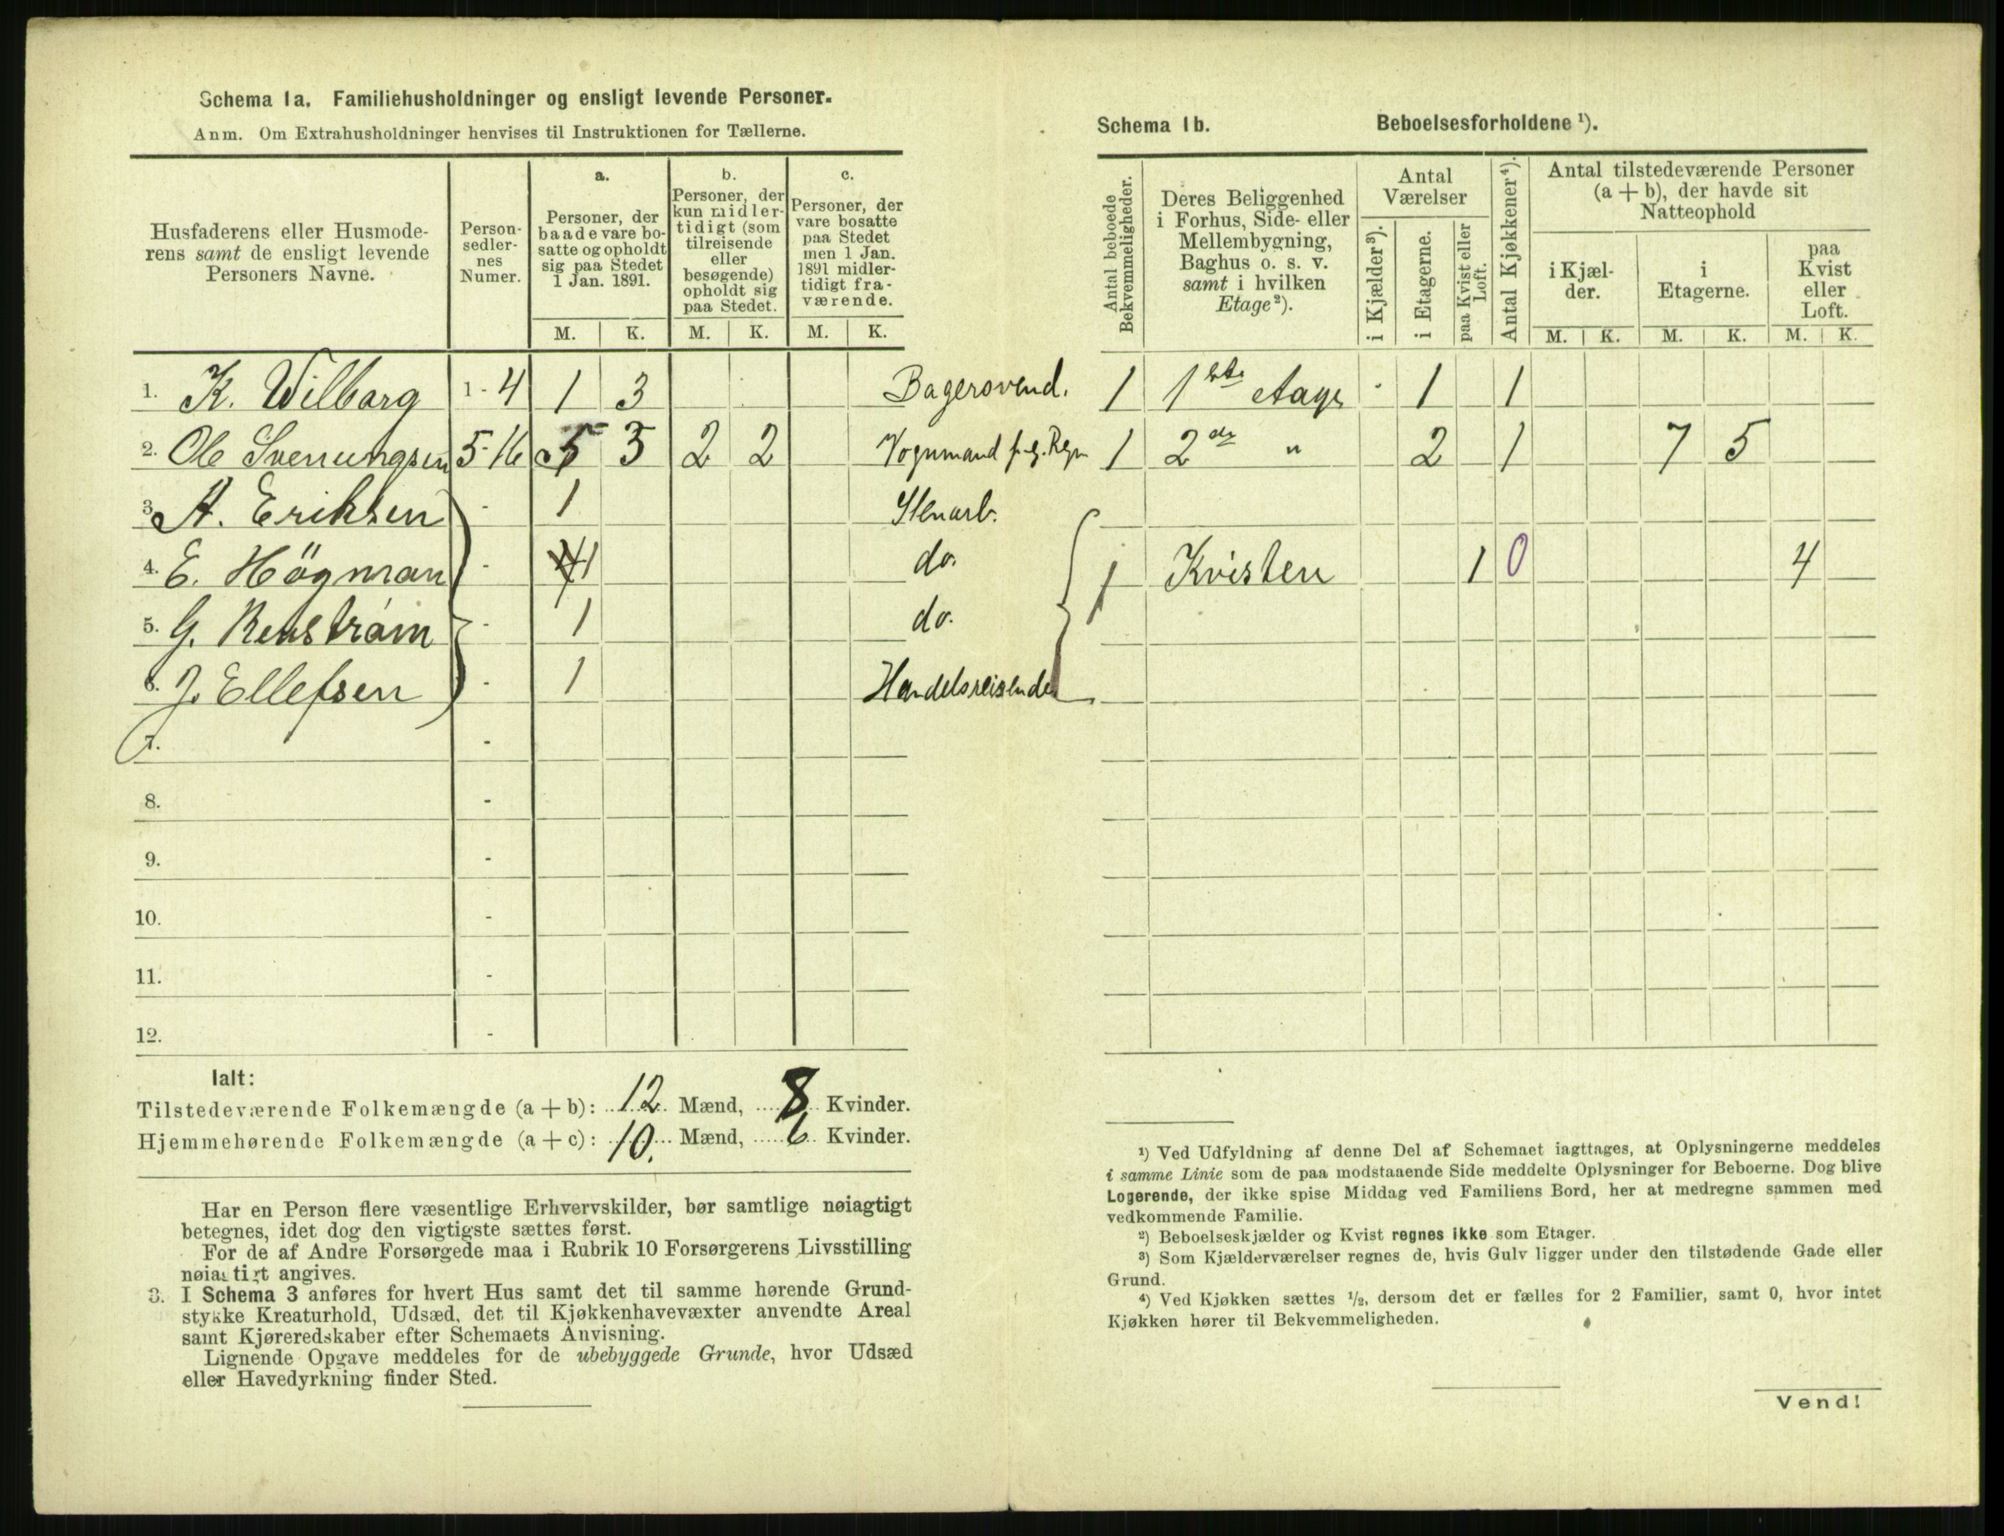 Schema 1a. Familiehusholdninger og ensligt levende Personer.
Anm. Om Extrahusholdninger henvises til Instruktionen for Tællerne.
Husfaderens eller Husmoderens samt de ensligt levende Personers Navne.
Personsedlernes Numer.
a.
Personer, der baade vare bosatte og opholdt sig paa Stedet 1 Jan. 1891.
b.
Personer, der kun midlertidigt (som tilreisende eller besøgende) opholdt sig paa Stedet.
c.
Personer, der vare bosatte paa Stedet men 1 Jan. 1891 midlertidigt fraværende.
M. K. M. K. M. K.
1. K. Wilbarg 1 - 4 1 3 Bagersvend.
2. Ole Svenungsen 5-16 5 3 2 2 Vognmand
3. A. Eriksen - 1 Stenarb.
4. E. Högman - 1 do.
5. G. Renström - 1 do.
6. J. Ellefsen - 1 Handelsreisende
7. -
8. -
9. -
10. -
11. -
12. -
Ialt:
Tilstedeværende Folkemængde (a + b): 12 Mænd, 8 Kvinder.
Hjemmehørende Folkemængde (a + c): 10. Mænd, 6 Kvinder.
Har en Person flere væsentlige Erhvervskilder, bør samtlige nøiagtigt
betegnes, idet dog den vigtigste sættes først.
For de af Andre Forsørgede maa i Rubrik 10 Forsørgerens Livsstilling
nøiagtigt angives.
3. I Schema 3 anføres for hvert Hus samt det til samme hørende Grund-
stykke Kreaturhold, Udsæd, det til Kjøkkenhavevæxter anvendte Areal
samt Kjøreredskaber efter Schemaets Anvisning.
Lignende Opgave meddeles for de ubebyggede Grunde, hvor Udsæd
eller Havedyrkning finder Sted.
Schema 1b. Beboelsesforholdene ¹).
Antal beboede Bekvemmeligheder.
Deres Beliggenhed i Forhus, Side- eller Mellembygning, Baghus o. s. v. samt i hvilken Etage²).
Antal Værelser
i Kjælder³).
i Etagerne.
paa Kvist eller Loft.
Antal Kjøkkener⁴).
Antal tilstedeværende Personer (a + b), der havde sit Natteophold
i Kjælder.
i Etagerne.
paa Kvist eller Loft.
M. K. M. K. M. K.
1 1ste etage 1 1
1 2den " 2 1 7 5
1 Kvisten 1 0 4
¹) Ved Udfyldning af denne Del af Schemaet iagttages, at Oplysningerne meddeles
i samme Linie som de paa modstaaende Side meddelte Oplysninger for Beboerne. Dog blive
Logerende, der ikke spise Middag ved Familiens Bord, her at medregne sammen med
vedkommende Familie.
²) Beboelseskjælder og Kvist regnes ikke som Etager.
³) Som Kjælderværelser regnes de, hvis Gulv ligger under den tilstødende Gade eller
Grund.
⁴) Ved Kjøkken sættes ½, dersom det er fælles for 2 Familier, samt 0, hvor intet
Kjøkken hører til Bekvemmeligheden.
Vend!